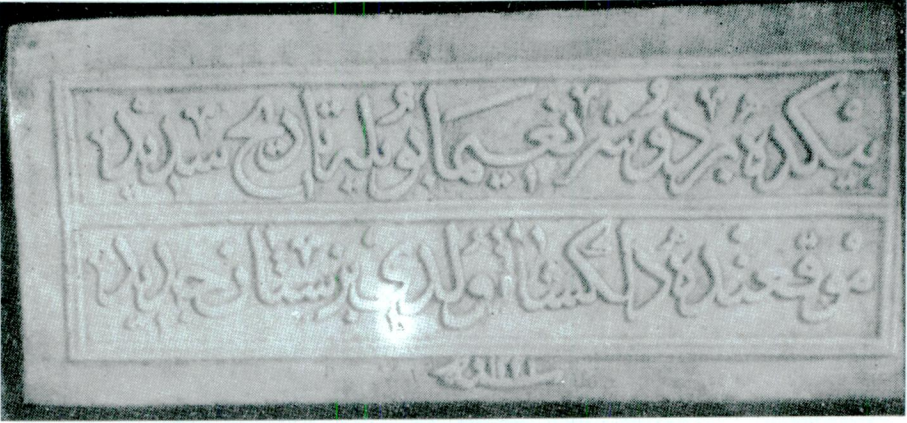 بیكده بر دوشر نعیما بویله تاریخ سدید
موقعنده دلكشا اولدی بزستان جدید
سنه